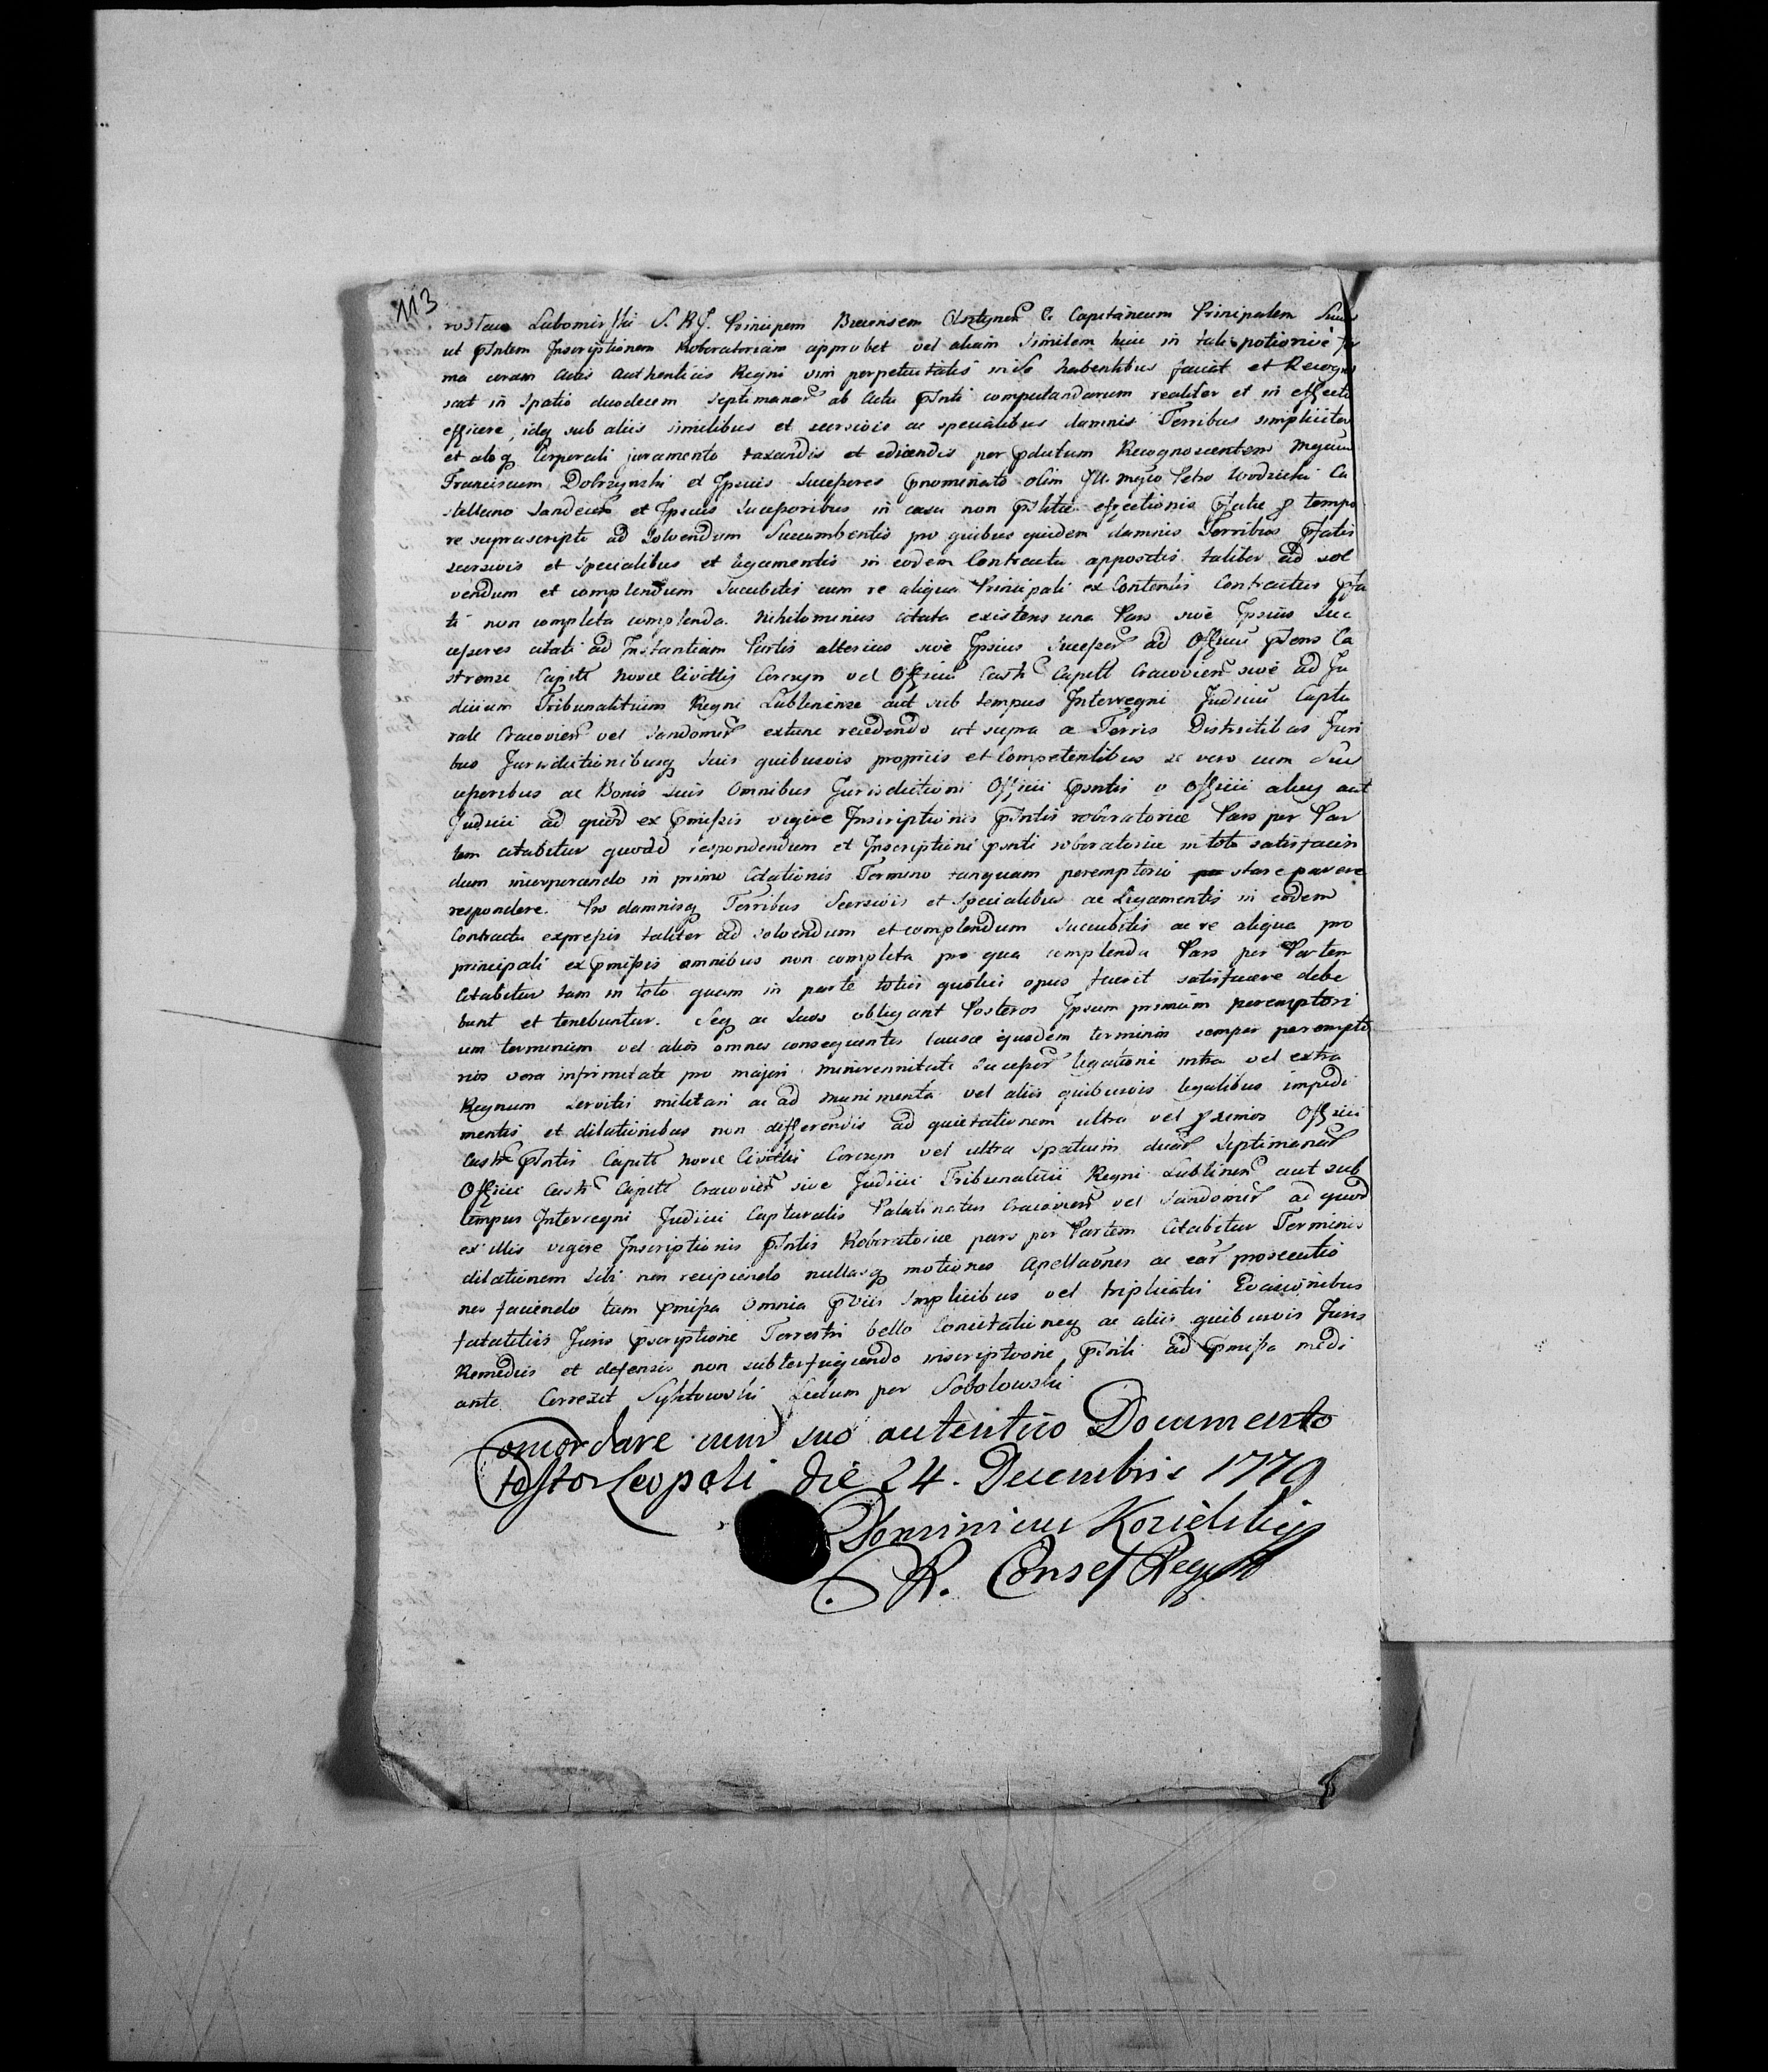 113
rostaus Lubomirski S. R. J. Principem Buconsem Olsztynen & Capitaneum Principalem suum
ut pntem Inscriptionem Roboratoriam approbet vel aliam similem huic in tali potiorivè for
ma coram Actis Authenticis Regni vim perpetuitatis in se habentibus faciat et Recogno
scat in Spatio duodecem Septimanar ab Actu pnti computandarum realiter et in effectu
efficere, idq sub aliis similibus et recursivis ac specialibus damnis Terribus simpliciter
et absq Corporali juramento taxandis et edicendis per pdictum Recognoscentem Mgcum
Franciscum Dobrzynski et Ipsius Succesores pnominato olim Ill. Mgco Petro Wodzicki Ca
stellano Sandecen et Ipsius Succesoribus in casu non pstitae effectionis pfatae p tempo
re suprascripti ad solvendum Succumbentis pro quibus quidem damnis Terribus pfatis
recursivis et specialibus et ligamentis in eodem Contractu appositis taliter ad sol
vendum et complendum Sucubitis cum re aliqua Principali ex Contentis Contractus pfa
ti non completa complenda. Nihilominus citata existens una Pars sivè Ipsius Suc
cesores citati ad Instantiam Partis alterius sivè Ipsius Succesor ad Officiu ptens Ca
strense Capitt Novae Civittis Corczyn vel Officiu Castr Capitt Cracovien sivè ad Ju
dicium Tribunalitium Regni Lublinense aut sub tempus Interregni Judiciu Captu
rale Cracovien vel Sandomir extunc recedendo ut supra a Terris Districtibus Juri
bus Jurisdictionibusq suis quibusvis propriis et Competentibus se vero cum Suc
cesoribus ac Bonis suis Omnibus Jurisdictioni Officii pntis v Officii alicuj aut
Judicii ad quod ex pmissis vigore Inscriptionis pntis roboratoriae Pars per Par
tem citabitur quoad respondendum et Inscriptioni pnti roboratoriae in toto satisfacien
dum incorporando in primo Citationis Termino tanquam peremptorio stare parere
respondere. Pro damnisq Terribus Recursivis et Specialibus ac Ligamentis in eodem
Contractu expressis taliter ad solvendum et complendum sucubitis ac re aliqua pro
principali ex pmissis omnibus non completa pro qua complenda Pars per Partem
Citabitur tam in toto quam in parte toties quoties opus fuerit satisfacere debe
bunt et tenebuntur. Seq ac suos obligant Posteros Ipsum primum peremptori
um terminum vel alios omnes consequentes causae ejusdem terminos semper perempto
rios vera infirmitate pro majori minorennitate Succesor legatione intra vel extra
Regnum servitii militari ac ad munimenta vel aliis quibusvis legalibus impedi
mentis et dilationibus non differendis ad quietationem ultra vel pximos Officii
Castr pntis Capitt Novae Civittis Corczyn vel ultra spatium duar Septimanar
Officii Castr Capitt Cracovien sive Judicii Tribunalitii Regni Lublinen aut sub
tempus Interregni Judicii Capturalis Palatinatus Cracovien vel Sandomir ad quod
ex illis vigore Inscriptionis pntis Roboratoriae pars per Partem Citabitur Terminis
dilationem sibi non recipiendo nullasq motiones Apellaones ac ear prosecutio
nes faciendo tam pmissa Omnia pviis simplicibus vel triplicatis Evasionibus
fatalitiis Juris pscriptione Terrestri bello Concitationeq ac aliis quibusvis Juris
Remediis et defensis non subterfugiendo inscriptione pnti ad pmissa medi
ante Correxit Sykstowski Lectum per Sobolowski
Concordare cum suo autentico Documento
testor Leopoli die 24. Decembris 1779
Dominicus Kozielski
R. Conses Reg